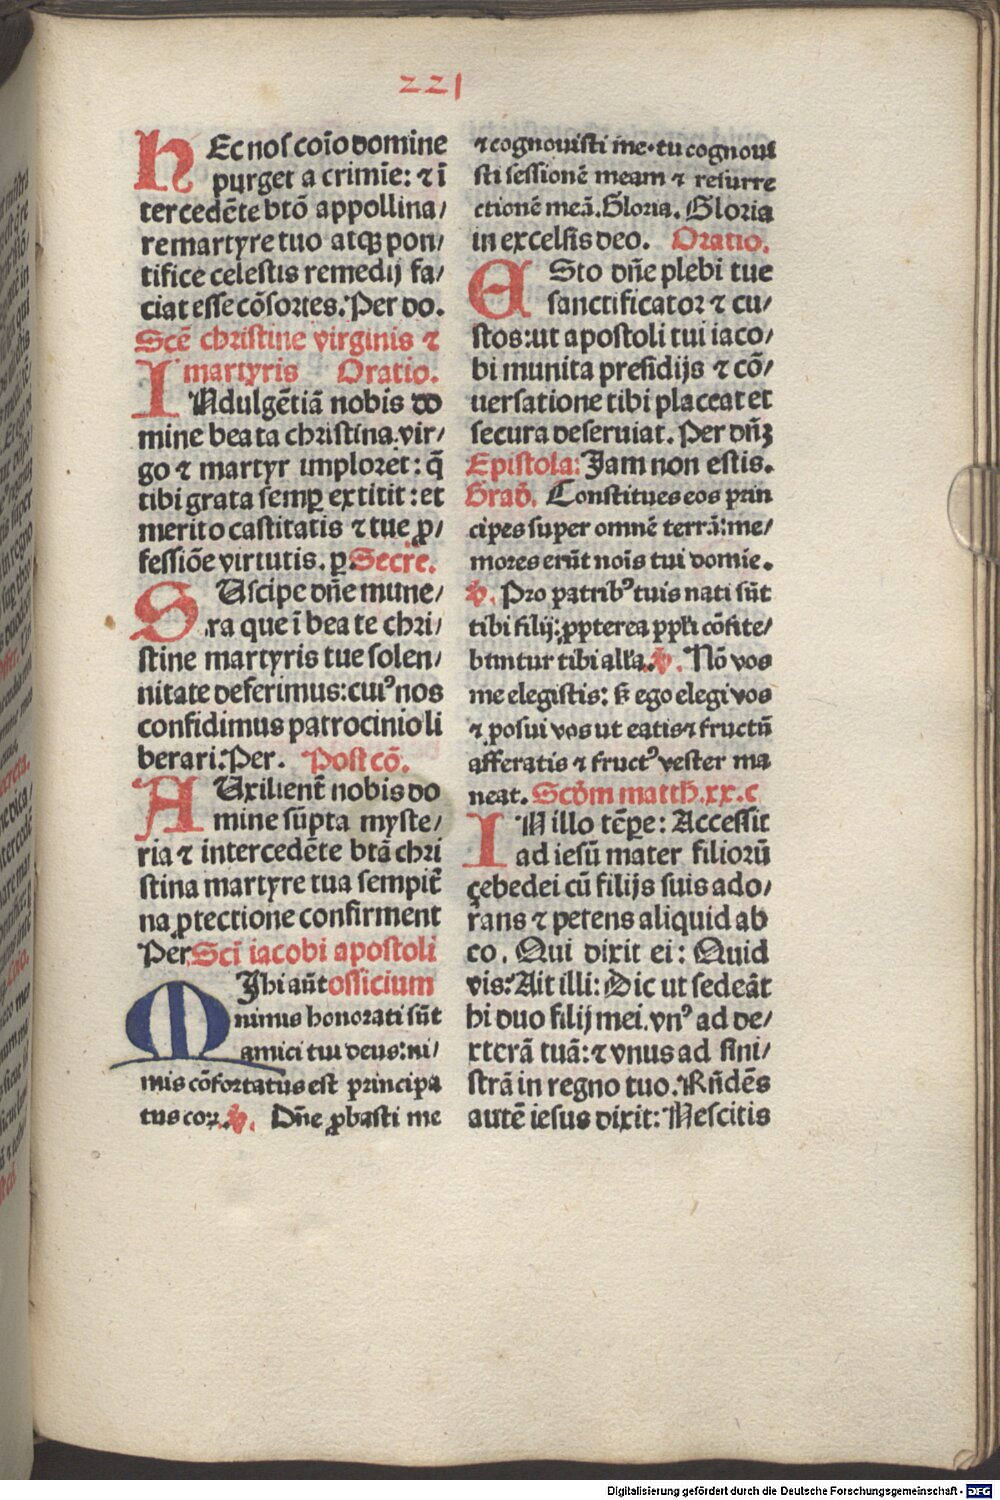 221
HEc nos coīo domine
purget a crimīe: ⁊ ī
tercedēte btō appollina/
re martyre tuo atqꝫ pon/
tifice celestis remedij fa/
ciat esse cōsortes. Per do.
Scē christine virginis ⁊
martyris Oratio.
INdulgētiā nobis do
mine beata christina vir/
go ⁊ martyr imploret: q̄
tibi grata semꝑ extitit: et
merito castitatis ⁊ tue ꝓ/
fessiōe virtutis. ꝑ. Secre.
SUscipe dn̄e mune/
ra que ī beate chri/
stine martyris tue solen/
nitate deferimus: cuiꝰ nos
confidimus patrocinio li
berari. Per. Post cō.
AUxilient nobis do
mine sūpta myste/
ria ⁊ intercedēte btā chri
stina martyre tua sempit̄
na ꝓtectione confirment
Per Sci iacobi apostoli
Ihi aūt officium
Mnimus honorati sūt
amici tui deus: ni/
mis cōfortatus est principa
tus coꝝ. v̄. Dn̄e ꝓbasti me
⁊ cognouisti me. tu cognoui
sti sessionē meam ⁊ resurre
ctionē meā. Gloria. Gloria
in excelsis deo. Oratio.
ESto dn̄e plebi tue
sanctificator ⁊ cu/
stos: ut apostoli tui iaco/
bi munita presidijs ⁊ cō/
uersatione tibi placeat et
secura deseruiat. Per dn̄ꝫ
Epistola: Iam non estis.
Grad̄. Constitues eos prin
cipes super omnē terrā: me/
mores erūt nois tui domie.
v̄. Pro patribꝰ tuis nati sūt
tibi filij: ꝓpterea ppli cōfite/
buntur tibi alla. v̄. Nō vos
me elegistis: s̄ ego elegi vos
⁊ posui vos ut eatis ⁊ fructū
afferatis ⁊ fructꝰ vester ma
neat. Scd̄m matth̄. xx. c
IN illo tēꝑe: Accessit
ad iesū mater filiorū
çebedei cū filijs suis ado/
rans ⁊ petens aliquid ab
eo. Qui dixit ei: Quid
vis: Ait illi: Dic ut sedeāt
hi duo filij mei. vnꝰ ad de/
xterā tuā: ⁊ vnus ad sini/
strā in regno tuo. Rn̄dēs
autē iesus dixit: Nescitis
Digitalisierung gefördert durch die Deutsche Forschungsgemeinschaft - DFG